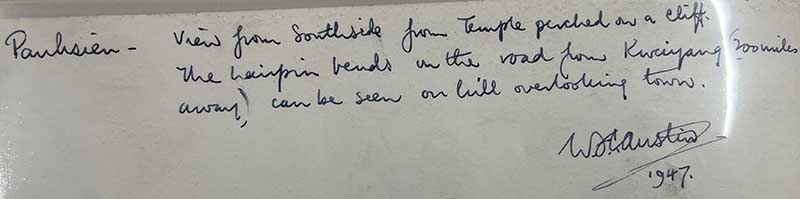 Panhsien - View from Southside from Temple perched on a cliff.
The hairpin bends in the road from Kweiyang (200 miles
away) can be seen on hill overlooking town.
Austin
1947.